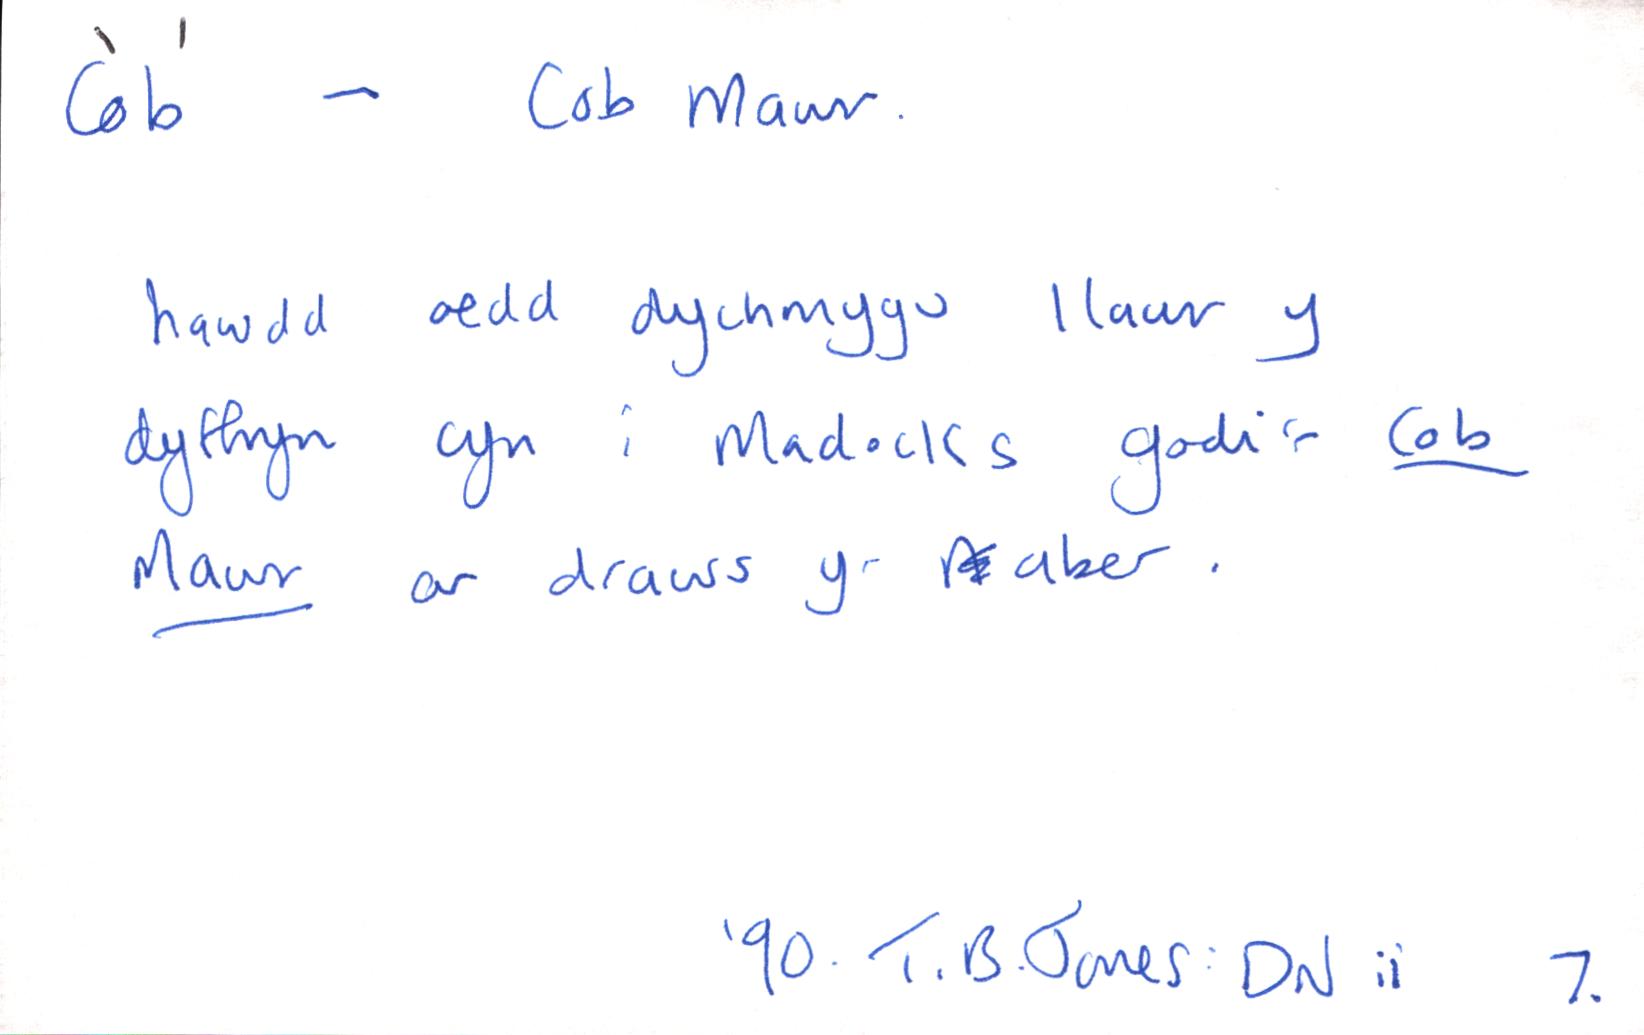 Còb' – Cob Mawr.
hawdd oedd dychmygu llawr y
dyffryn cyn i Madocks godi'r Cob
Mawr ar draws yr aber.
'90. T.B.Jones: DN ii 7.